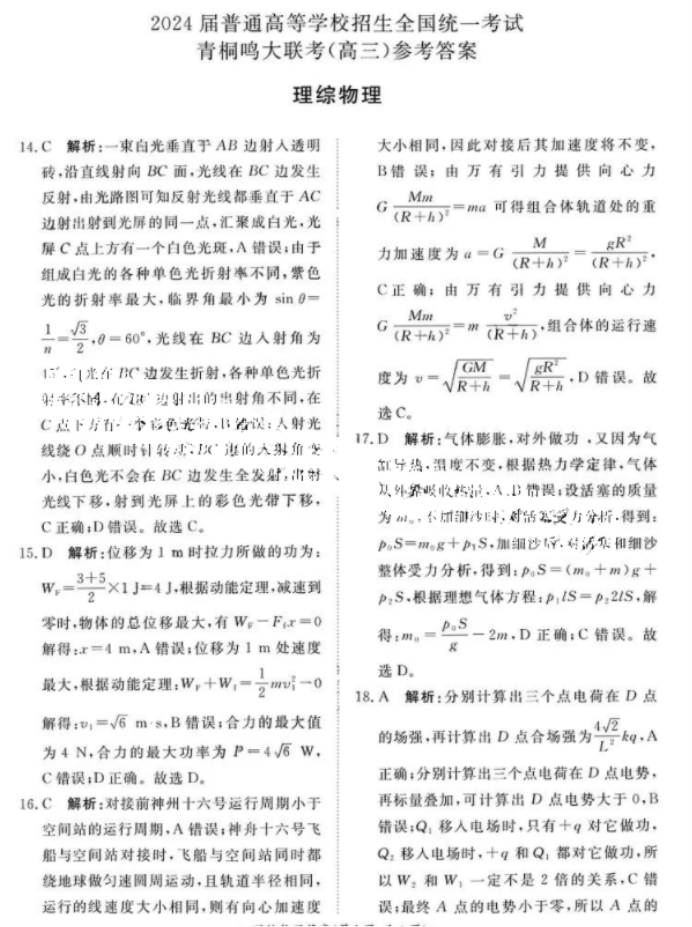 2024 届普通高等学校招生全国统一考试
青桐鸣大联考(高三)参考答案
理综物理
14. C 解析:一束白光垂直于 AB 边射入透明
砖,沿直线射向 BC 面,光线在 BC 边发生
反射,由光路图可知反射光线都垂直于 AC
边射出射到光屏的同一点,汇聚成白光,光
屏 C 点上方有一个白色光斑,A 错误;由于
组成白光的各种单色光折射率不同,紫色
光的折射率最大,临界角最小为 sin θ=
1/n=√3/2,θ=60°,光线在 BC 边入射角为
BC 边发生折射,各种单色光折
射出的出射角不同,在
C 点下方有一个彩色光 B 错误;入射光
线绕 O 点顺时针转 BC 边的入射角
小,白色光不会在 BC 边发生全发射,出射
光线下移,射到光屏上的彩色光带下移,
C 正确;D 错误。故选 C。
15. D 解析:位移为 1 m 时拉力所做的功为:
W_F=(3+5)/2×1 J=4 J,根据动能定理,减速到
零时,物体的总位移最大,有 W_F-F_f x=0
解得:x=4 m,A 错误;位移为 1 m 处速度
最大,根据动能定理:W_F+W_f=1/2 mv₁²-0
解得:v₁=√6 m·s,B 错误;合力的最大值
为 4 N,合力的最大功率为 P=4√6 W,
C 错误;D 正确。故选 D。
16. C 解析:对接前神州十六号运行周期小于
空间站的运行周期,A 错误;神舟十六号飞
船与空间站对接时,飞船与空间站同时都
绕地球做匀速圆周运动,且轨道半径相同,
运行的线速度大小相同,则有向心加速度
大小相同,因此对接后其加速度将不变,
B 错误;由万有引力提供向心力
G Mm/(R+h)²=ma 可得组合体轨道处的重
力加速度为 a=G M/(R+h)²=gR²/(R+h)²,
C 正确;由万有引力提供向心力
G Mm/(R+h)²=m v²/(R+h),组合体的运行速
度为 v=√(GM/(R+h))=√(gR²/(R+h)),D 错误。故
选 C。
17. D 解析:气体膨胀,对外做功,又因为气
缸导热,温度不变,根据热力学定律,气体
从外界吸收热量,A、B 错误;设活塞的质量
为 m₀,不加细沙时,对活塞受力分析,得到:
p₀S=m₀g+p₁S,加细沙后,对活塞和细沙
整体受力分析,得到:p₀S=(m₀+m)g+
p₂S,根据理想气体方程:p₁lS=p₂2lS,解
得:m₀=p₀S/g-2m,D 正确;C 错误。故
选 D。
18. A 解析:分别计算出三个点电荷在 D 点
的场强,再计算出 D 点合场强为 4√2/L² kq,A
正确;分别计算出三个点电荷在 D 点电势,
再标量叠加,可计算出 D 点电势大于 0,B
错误;Q₁ 移入电场时,只有+q 对它做功,
Q₂ 移入电场时,+q 和 Q₁ 都对它做功,所
以 W₂ 和 W₁ 一定不是 2 倍的关系,C 错
误;最终 A 点的电势小于零,所以 A 点的